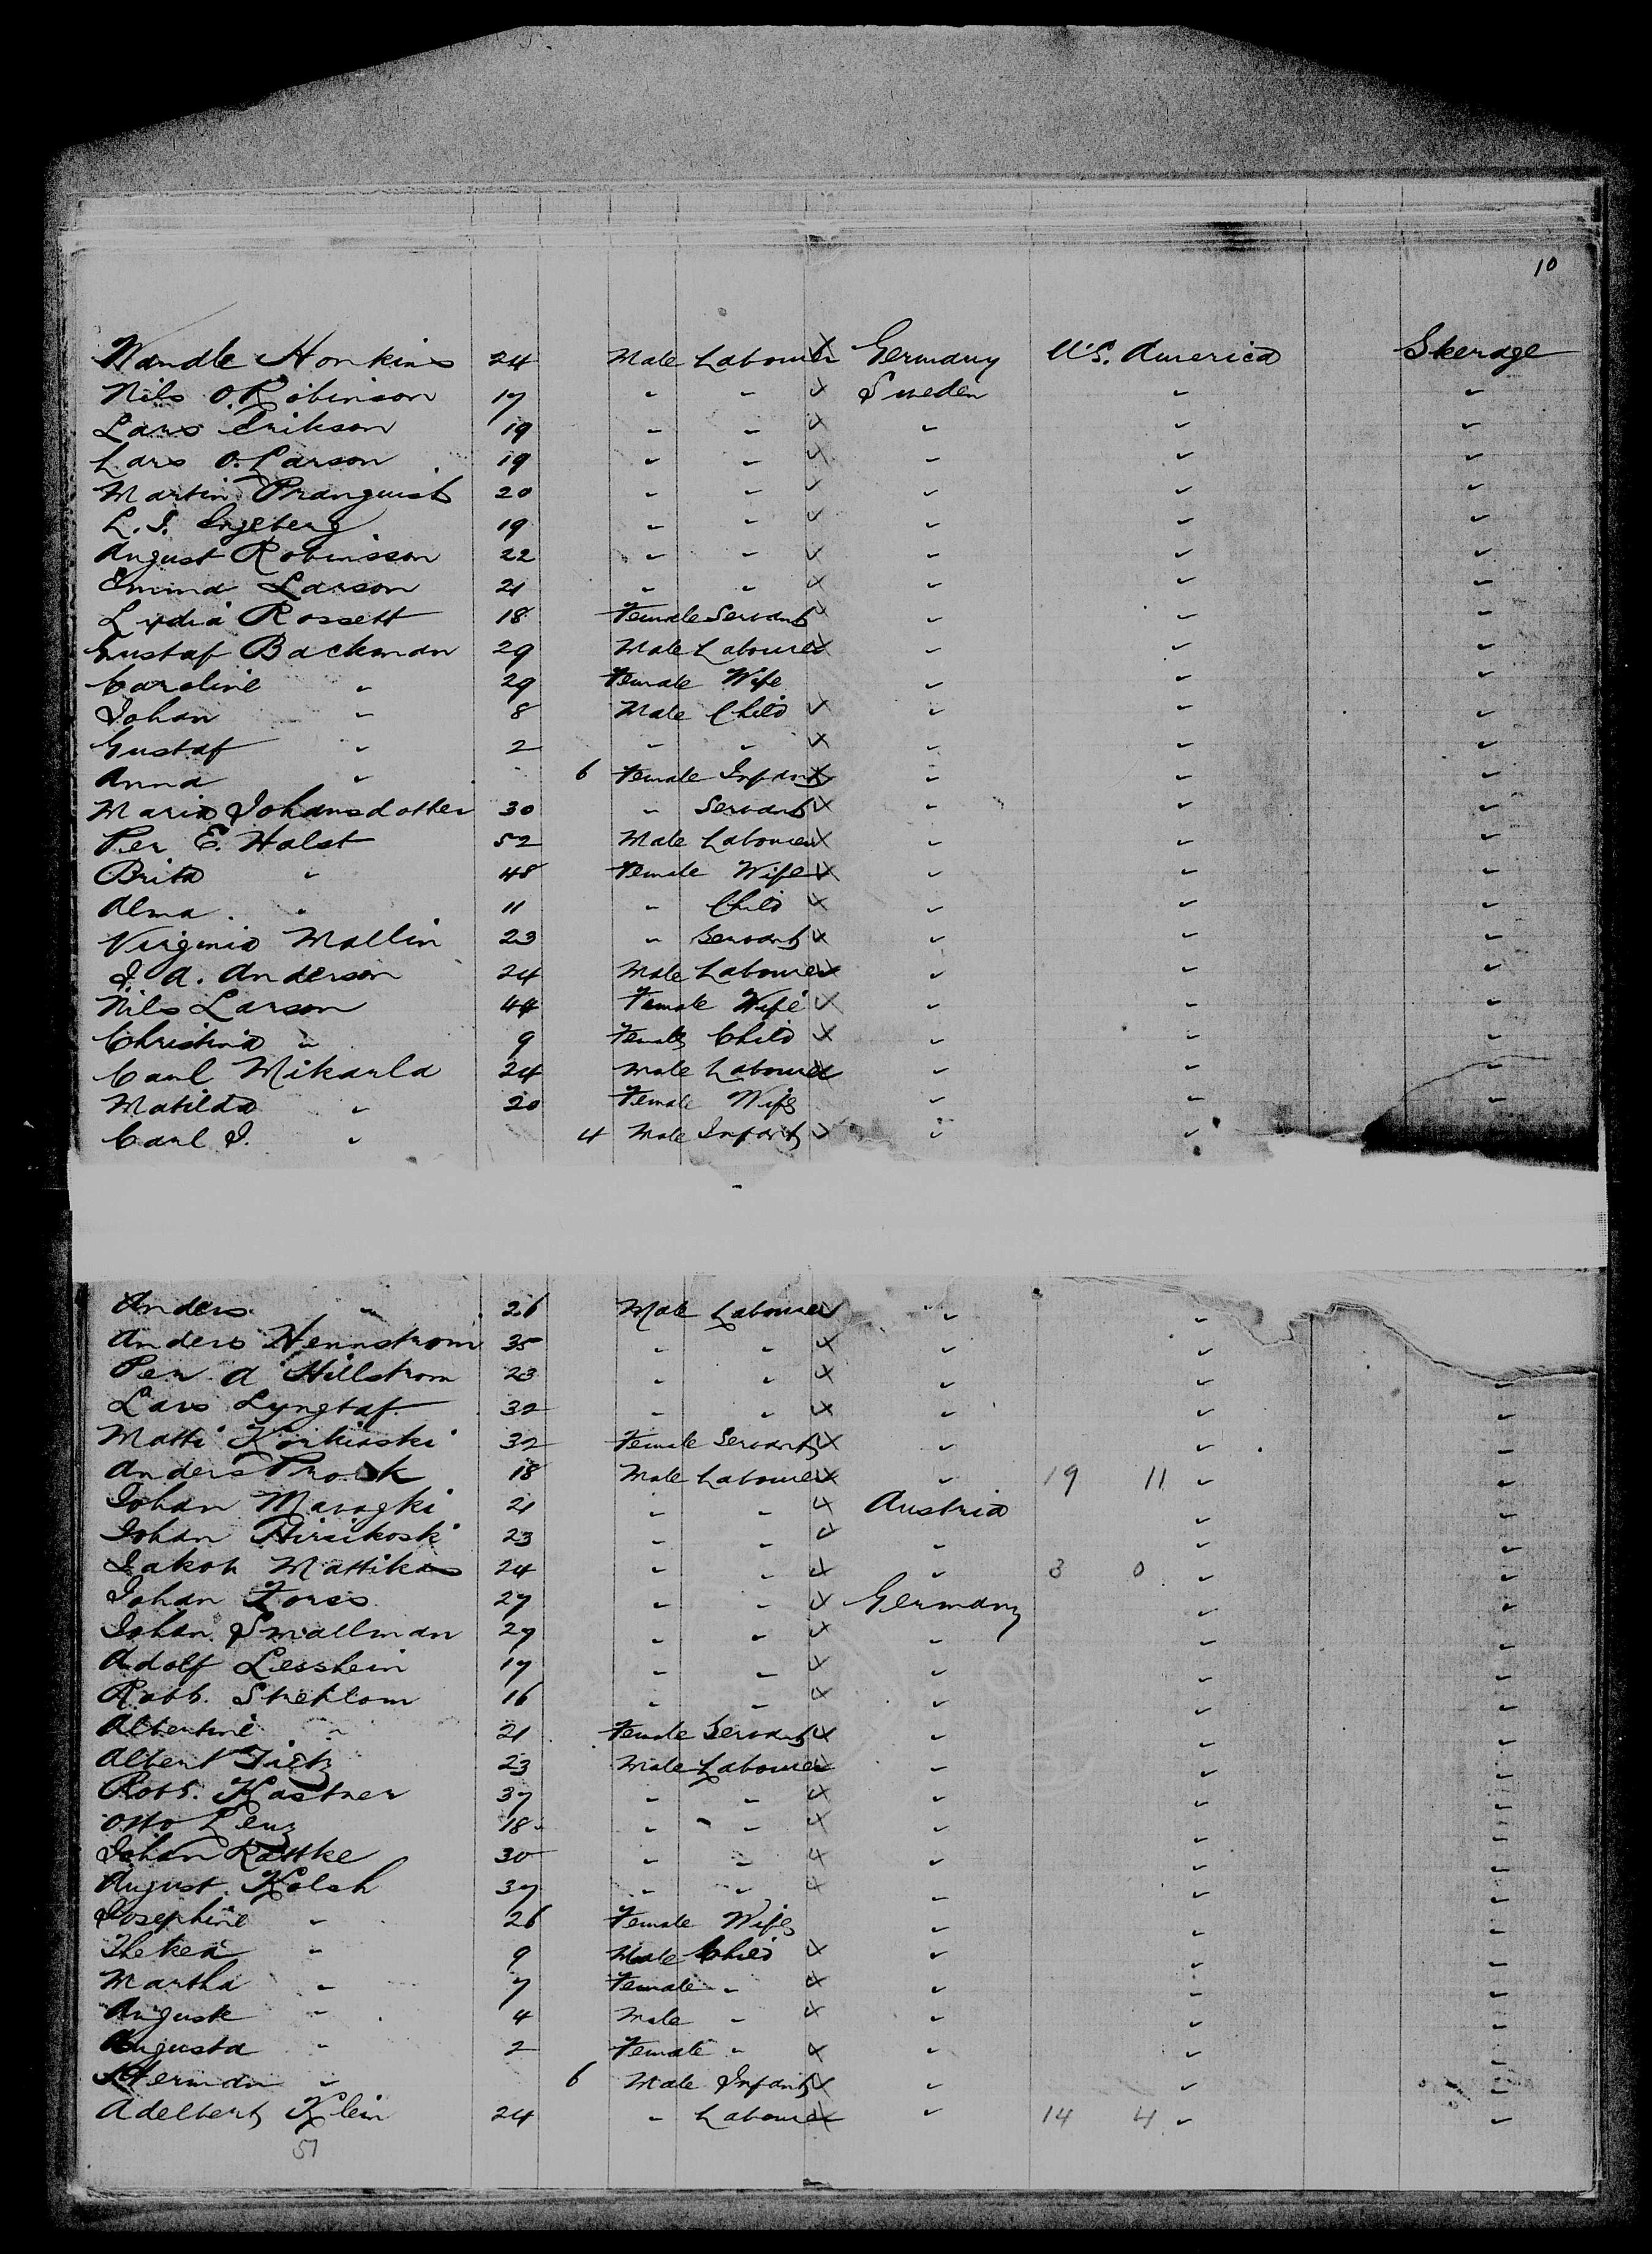 10
Wandle Honkins 24 Male Labourer X Germany U.S. America Skerage
Nils O. Robinson 17 " " X Sweden " "
Lars Erikson 19 " " X " " "
Lars O. Larson 19 " " X " " "
Martin Pranquist 20 " " X " " "
L. I. Engeberg 19 " " X " " "
August Robinsson 22 " " X " " "
Emma Larson 21 " " X " " "
Lydia Rossett 18 Female Servant X " " "
Gustaf Backman 29 Male Labourer X " " "
Caroline " 29 Female Wife " " "
Johan " 8 Male Child X " " "
Gustaf " 2 " " X " " "
Anna " 6 Female Infant X " " "
Maria Johansdotter 30 " Servant X " " "
Per E. Halst 52 Male Labourer X " " "
Brita " 48 Female Wife X " " "
Alma " 11 " Child X " " "
Virginia Mallin 23 " Servant X " " "
J. A. Anderson 24 Male Labourer X " " "
Nils Larson 44 Female Wife X " " "
Christina " 9 Female Child X " " "
Carl Mikaula 24 Male Labourer X " " "
Matilda " 20 Female Wife " " "
Carl J. " 4 Male Infant X " "
Anders " 26 Male Labourer X " "
Anders Hennstrom 35 " " X " "
Per A Hillstrom 23 " " X " " "
Lars Lyngtaf 32 " " X " " "
Matti Korkiaski 32 Female Servant X " " "
Anders 18 Male Labourer X " 19 11 " "
Johan Maragki 21 " " X Austria " "
Johan Hirsikoski 23 " " X " " "
Jakob Mattikas 24 " " X " 3 0 " "
Johan Forss 27 " " X Germany " "
Johan Smallman 27 " " X " " "
Adolf Lesshein 17 " " X " " "
Robt. Strehlom 16 " " X " " "
Albertine " 21 Female Servant X " " "
Albert Tietz 23 Male Labourer X " " "
Robt. Kastner 37 " " X " " "
Otto Lenz 18 " " X " " "
Johan Rattke 30 " " X " " "
August Kolsh 37 " " X " " "
Josephine " 26 Female Wife " " "
Thekea " 9 Male Child X " " "
Martha " 7 Female " X " " "
August " 4 Male " X " " "
Augusta " 2 Female " X " " "
Herman " 6 Male Infant X " " "
Adelbert Klein 24 " Labourer X " 14 4 " "
51